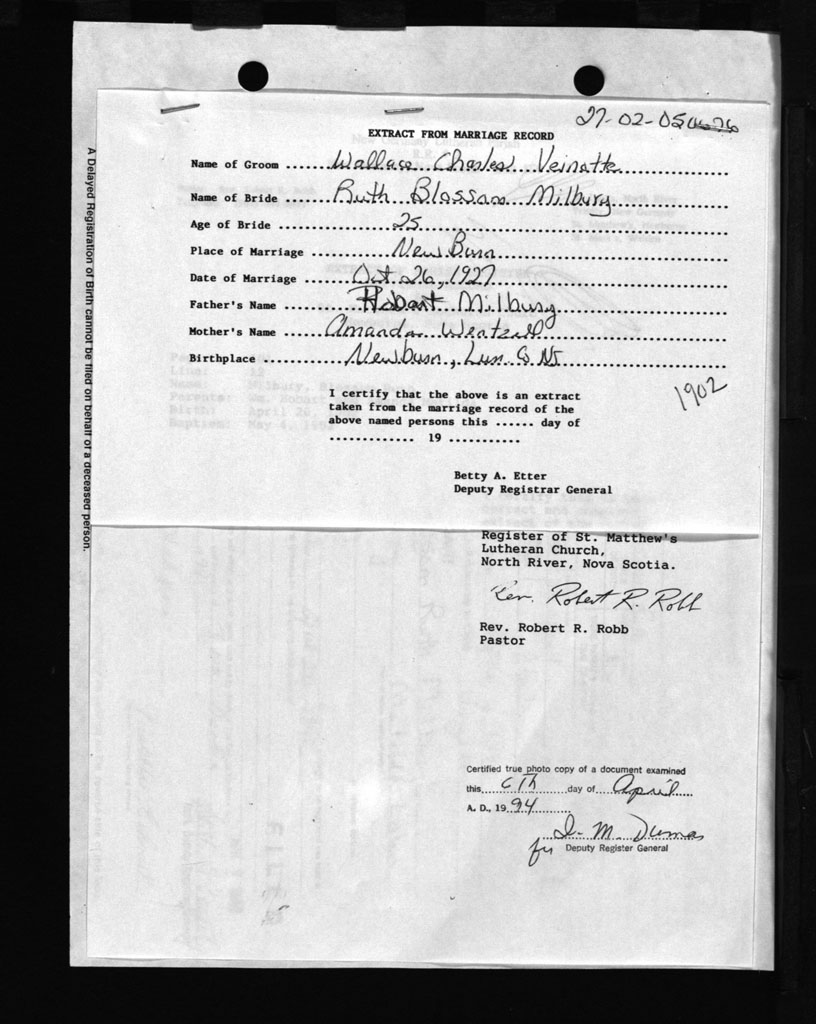 27-02-05
EXTRACT FROM MARRIAGE RECORD
Name of Groom ...... Wallace Charles Veinotte
Name of Bride ...... Ruth Blossom Milbury
Age of Bride ...... 25
Place of Marriage ...... New Burn
Date of Marriage ...... Oct 26, 1927
Father's Name ...... Hobart Milbury
Mother's Name ...... Amanda Wentzell
Birthplace ...... Newburn, Lun. Co NS
1902
I certify that the above is an extract
taken from the marriage record of the
above named persons this ...... day of
............. 19 ...........
Betty A. Etter
Deputy Registrar General
Register of St. Matthew's
Lutheran Church,
North River, Nova Scotia.
Rev. Robert R. Robb
Rev. Robert R. Robb
Pastor
Certified true photo copy of a document examined
this 6th day of April
A. D., 19 94
D. M. Dumas
for Deputy Register General
A Delayed Registration of Birth cannot be filed on behalf of a deceased person.